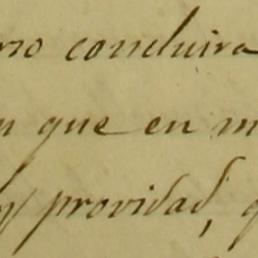 concluira
que en
y providad,